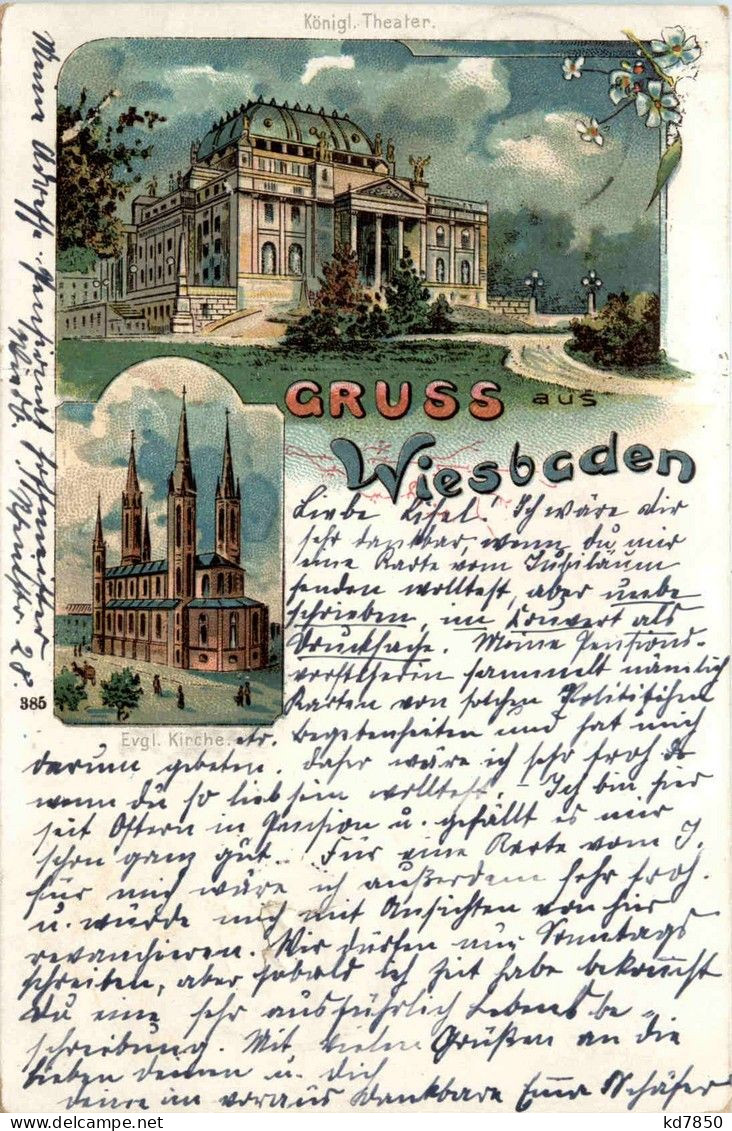 Königl. Theater.
GRUSS aus
Wiesbaden
Liebe Lisel. Ich wäre dir
sehr dankbar, wenn du mir
eine Karte vom Jubiläum
senden wolltest, aber unbe
schrieben, im Couvert als
Drucksache. Meine Pensions-
vorsteherin sammelt nämlich
Karten von solchen Politischen
etc. Begebenheiten und hat mich
darum gebeten. daher wäre ich sehr froh
wenn du so lieb sein wolltest. – Ich bin hier
seit Ostern in Pension u. gefällt es mir
schon ganz gut. Für eine Karte vom J.
für mich wäre ich außerdem sehr froh.
u. würde mich mit Ansichten von hier
revanchieren. Wir dürfen nur Sonntags
schreiben, aber sobald ich Zeit habe bekommst
du eine sehr ausführlich Lebensbe-
schreibung. Mit vielen Grüßen an die
lieben deinen u. dich
deine im voraus dankbare Emma Schäfer
Evgl. Kirche.
385
Meine Adresse Pensionat
28.
kd7850